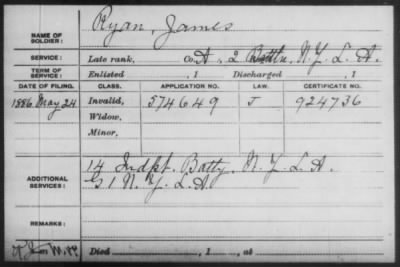 Ryan, James
NAME OF SOLDIER:
SERVICE: Late rank, Co. A, 2 Battn. N.Y. L. A.
TERM OF SERVICE: Enlisted , 1 Discharged , 1
DATE OF FILING. CLASS. APPLICATION NO. LAW. CERTIFICATE NO.
1886 May 24 Invalid, 574649 J 924736
Widow,
Minor,
14 Indpt. Batty. N.Y. L. A.
ADDITIONAL SERVICES: G 1 N.Y. L. A.
REMARKS:
Died , 1 , at